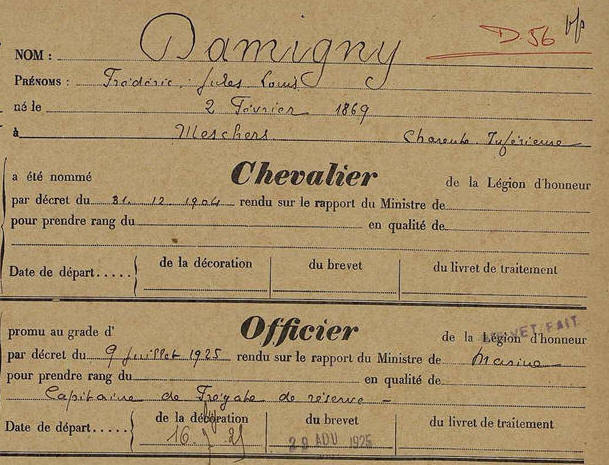 D.56
NOM : Damigny
PRÉNOMS : Frédéric Jules Louis
né le 2 Février 1869
à Meschers Charente Inférieure
a été nommé Chevalier de la Légion d'honneur
par décret du 31. 12. 1904 rendu sur le rapport du Ministre de
pour prendre rang du en qualité de
Date de départ..... de la décoration du brevet du livret de traitement
BREVET FAIT
promu au grade d' Officier de la Légion d'honneur
par décret du 9 Juillet 1925 rendu sur le rapport du Ministre de Marine
pour prendre rang du en qualité de
Capitaine de Frégate de réserve -
Date de départ..... de la décoration du brevet du livret de traitement
16 7 25 29 AOU 1925